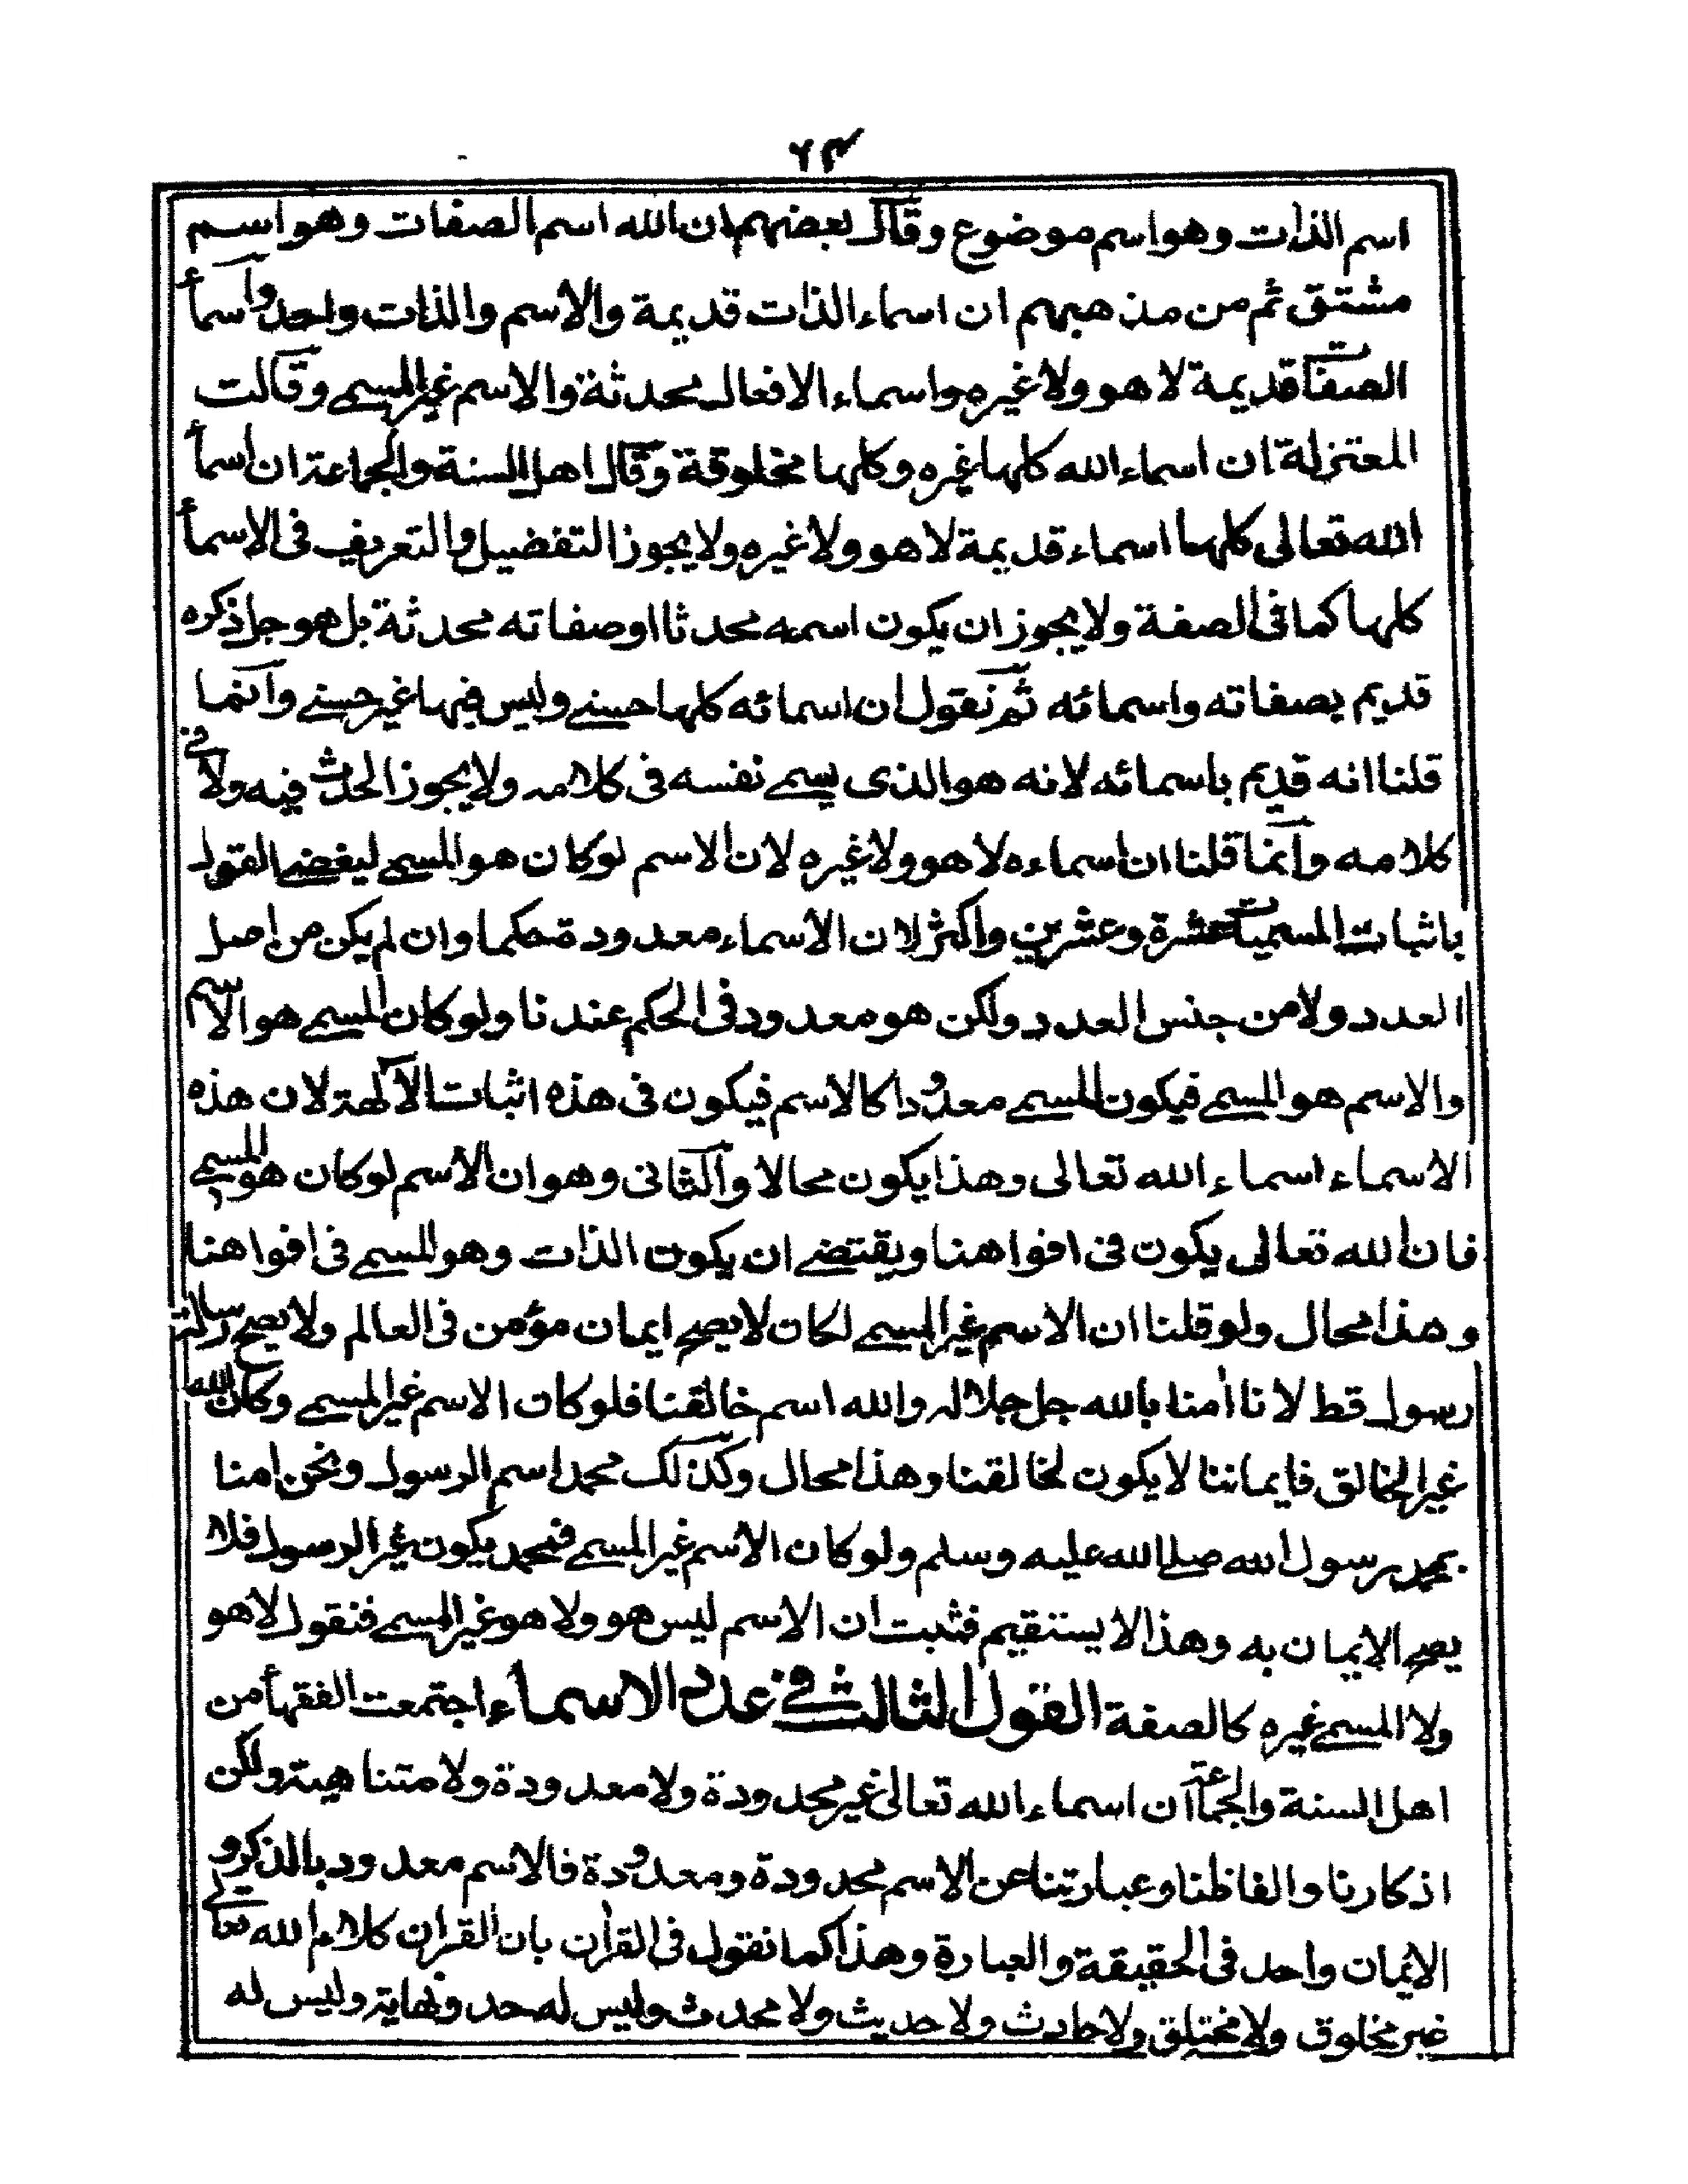 ٦٣
اسم الذات وهو اسم موضوع وقال بعضهم ان الله اسم الصفات وهو اسم
مشتق ثم من مذهبهم ان اسماء الذات قديمة والاسم والذات واحد واسمأ
الصفات قديمة لا هو ولا غيره واسماء الافعال محدثة والاسم غير المسمى وقالت
المعتزلة ان اسماء الله كلها غيره وكلها مخلوقة وقال اهل السنة والجماعة ان اسمأ
الله تعالى كلها اسماء قديمة لا هو ولا غيره ولا يجوز التفضيل والتعريف فى الاسمأ
كلها كما فى الصفة ولا يجوز ان يكون اسمه محدثا او صفاته محدثة بل هو جل ذكره
قديم بصفاته واسمائه ثم نقول ان اسمائه كلها حسنى وليس فيها غير حسنى وانما
قلنا انه قديم باسمائه لانه هو الذى يسمى نفسه فى كلامه ولا يجوز الحدث فيه ولا فى
كلامه وانما قلنا ان اسماءه لا هو ولا غيره لان الاسم لو كان هو المسمى ليفضى القول
باثبات المسميات عشرة وعشرين واكثر لان الاسماء معدودة حكما وان لم يكن من اصل
العدد ولا من جنس العدد ولكن هو معدود فى الحكم عندنا ولو كان المسمى هو الاسم
والاسم هو المسمى فيكون المسمى معدودا كالاسم فيكون فى هذه اثبات الآلهة لان هذه
الاسماء اسماء الله تعالى وهذا يكون محالا والثانى وهو ان الاسم لو كان هو المسمى
فان الله تعالى يكون فى افواهنا ويقتضى ان يكون الذات وهو المسمى فى افواهنا
وهذا محال ولو قلنا ان الاسم غير المسمى لكان لا يصح ايمان مؤمن فى العالم ولا يصح رسالة
رسول قط لانا أمنا بالله جل جلاله والله اسم خالقنا فلو كان الاسم غير المسمى وكان الله
غير الخالق فايماننا لا يكون لخالقنا وهذا محال وكذلك محمد اسم الرسول ونحن امنا
بمحمد رسول الله صلى الله عليه وسلم ولو كان الاسم غير المسمى فمحمد يكون غير الرسول فلا
يصح الايمان به وهذا لا يستقيم فثبت ان الاسم ليس هو ولا هو غير المسمى فنقول لا هو
ولا المسمى غيره كالصفة القول الثالث فى عدد الاسماء اجتمعت الفقهأ من
اهل السنة والجماعة ان اسماء الله تعالى غير محدودة ولا معدودة ولا متناهية ولكن
اذكارنا والفاظنا وعبارتنا عن الاسم محدودة ومعدودة فالاسم معدود بالذكر و
الايمان واحد فى الحقيقة والعبارة وهذا كما نقول فى القرأن بان القران كلام الله تعالى
غير مخلوق ولا مختلق ولا حادث ولا حديث ولا محدث وليس له حد ونهاية وليس له